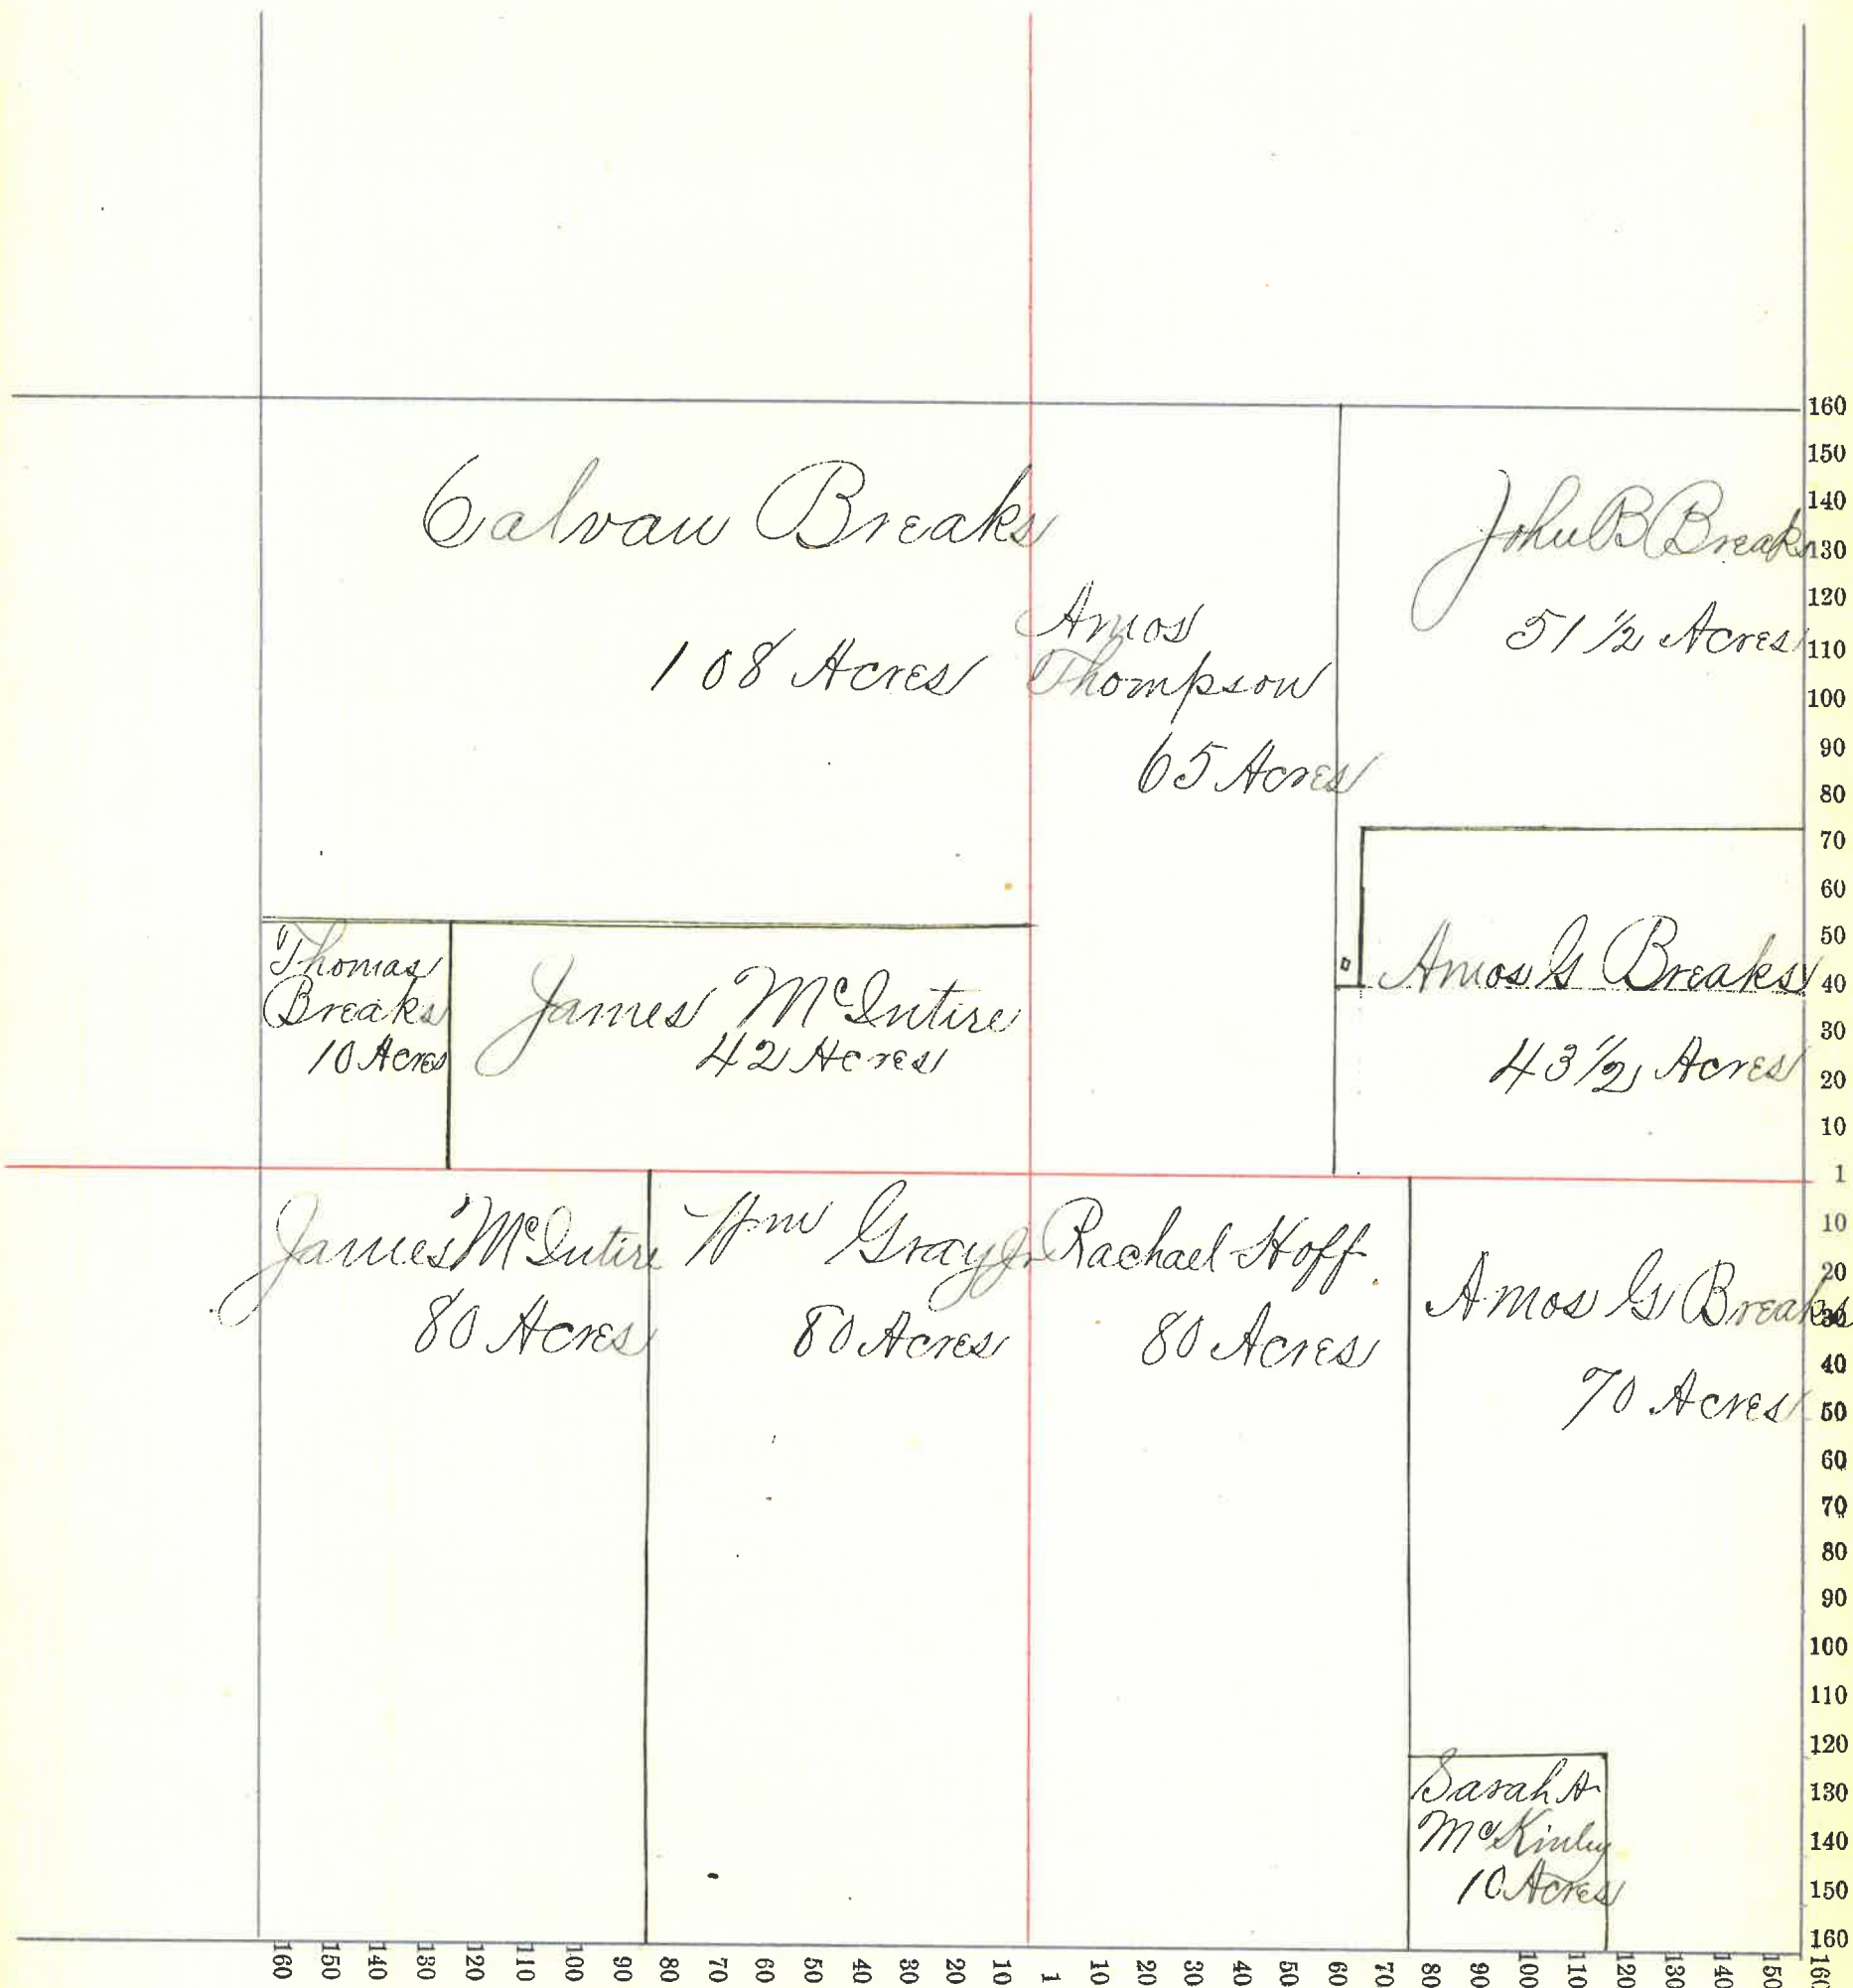 Calvan Breaks
108 Acres
Amos
Thompson
65 Acres
John B Breaks
51 1/2 Acres
Thomas
Breaks
10 Acres
James McIntire
42 Acres
Amos G Breaks
43 1/2 Acres
James McIntire
80 Acres
Wm Gray Jr
80 Acres
Rachael Hoff
80 Acres
Amos G Breaks
70 Acres
Sarah A
McKinley
10 Acres
160
150
140
130
120
110
100
90
80
70
60
50
40
30
20
10
1
10
20
30
40
50
60
70
80
90
100
110
120
130
140
150
160
160 150 140 130 120 110 100 90 80 70 60 50 40 30 20 10 1 10 20 30 40 50 60 70 80 90 100 110 120 130 140 150 160